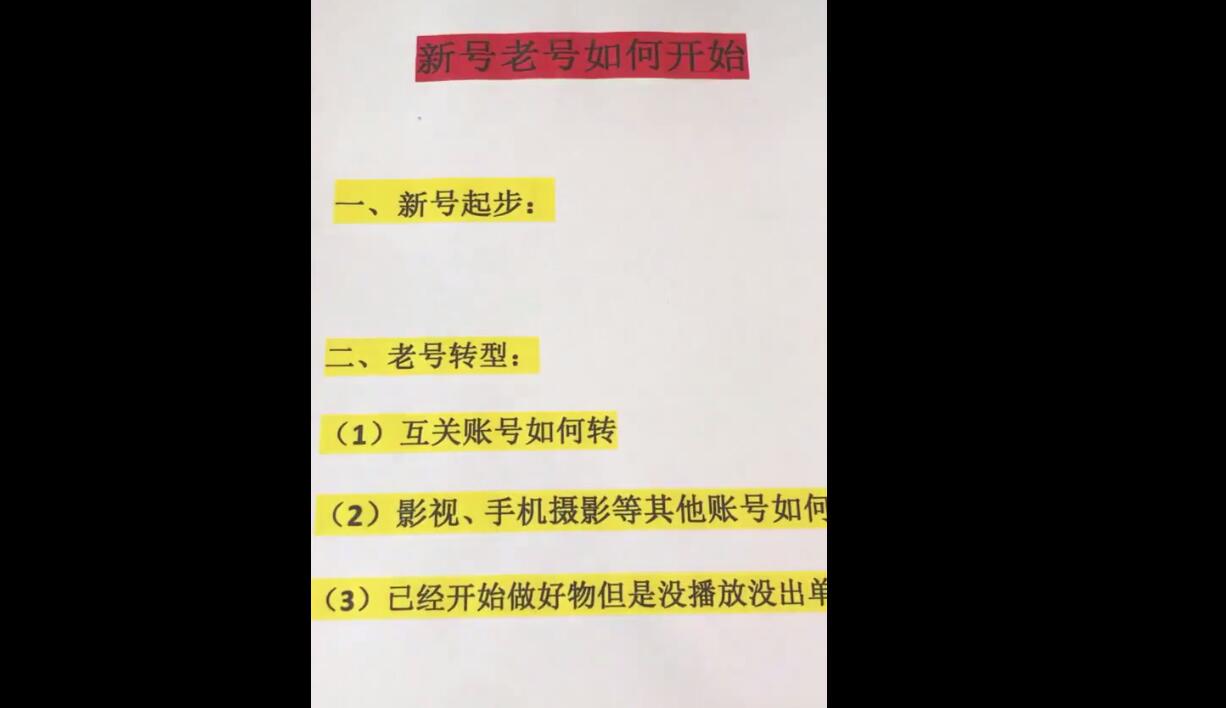 新号老号如何开始
一、新号起步：
二、老号转型：
（1）互关账号如何转
（2）影视、手机摄影等其他账号如何
（3）已经开始做好物但是没播放没出单